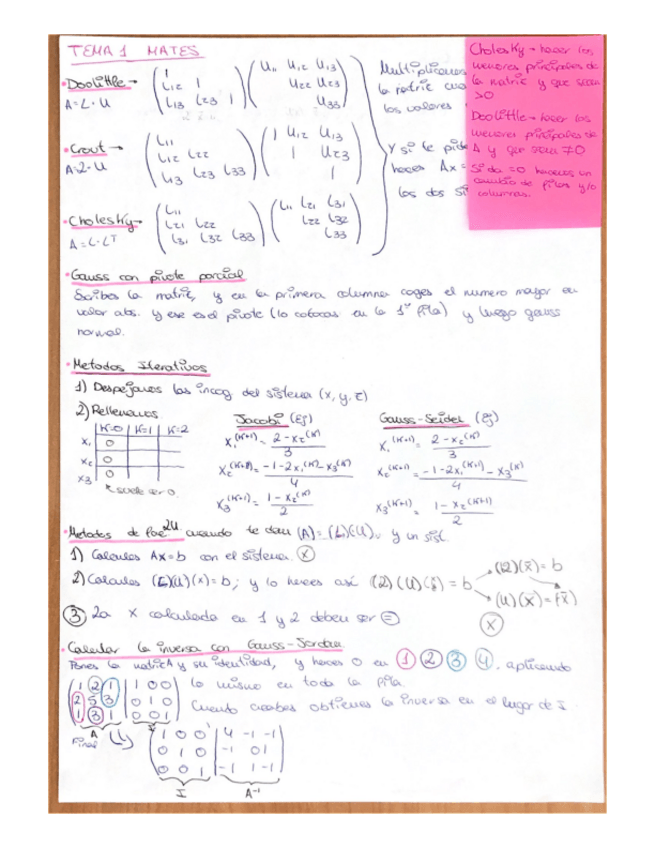 TEMA 1 MATES
• Doolittle → ( 1 / L12 1 / L13 L23 1 ) ( U11 U12 U13 / U22 U23 / U33 )
A = L · U
• Crout → ( L11 / L12 L22 / L13 L23 L33 ) ( 1 U12 U13 / 1 U23 / 1 )
A = L · U
• Cholesky → ( L11 / L21 L22 / L31 L32 L33 ) ( L11 L21 L31 / L22 L32 / L33 )
A = L · Lᵀ
Multiplicamos
la matriz
los valores
Y si te pide
haces Ax =
los dos
Cholesky → hacer los
menores principales de
la matriz y que sean
>0
Doolittle → hacer los
menores principales de
A y que sean ≠0
Si da =0 hacemos un
cambio de filas y/o
columnas.
• Gauss con pivote parcial
Scribes la matriz, y en la primera columna coges el numero mayor en
valor abs. y ese es el pivote (lo colocas en la 1ª fila) y luego gauss
normal.
• Metodos Iterativos
1) Despejamos las incog del sistema (x, y, z)
2) Rellenamos
K=0 | K=1 | K=2
x₁ 0
x₂ 0
x₃ 0
suele ser 0.
Jacobi (Ej)
x₁^(K+1) = (2 - x₂^(K)) / 3
x₂^(K+1) = (-1 - 2x₁^(K) - x₃^(K)) / 4
x₃^(K+1) = (1 - x₂^(K)) / 2
Gauss-Seidel (Ej)
x₁^(K+1) = (2 - x₂^(K)) / 3
x₂^(K+1) = (-1 - 2x₁^(K+1) - x₃^(K)) / 4
x₃^(K+1) = (1 - x₂^(K+1)) / 2
• Metodos de LU cuando te dan (A) = (L)(U), y un sist.
1) Calculas Ax=b con el sistema. (x)
2) Calculas (L)(U)(x) = b; y lo haces así
3) La x calculada en 1 y 2 deben ser =
• Calcular la inversa con Gauss-Jordan
Pones la matriz A y su identidad, y haces 0 en 1 2 3 4. aplicando
lo mismo en toda la fila.
Cuando acabas obtienes la inversa en el lugar de I.
( 1 2 1 | 1 0 0 )
( 2 5 3 | 0 1 0 )
( 1 3 1 | 0 0 1 )
A I
Final
( 1 0 0 | 4 -1 -1 )
( 0 1 0 | -1 0 1 )
( 0 0 1 | -1 1 -1 )
I A⁻¹